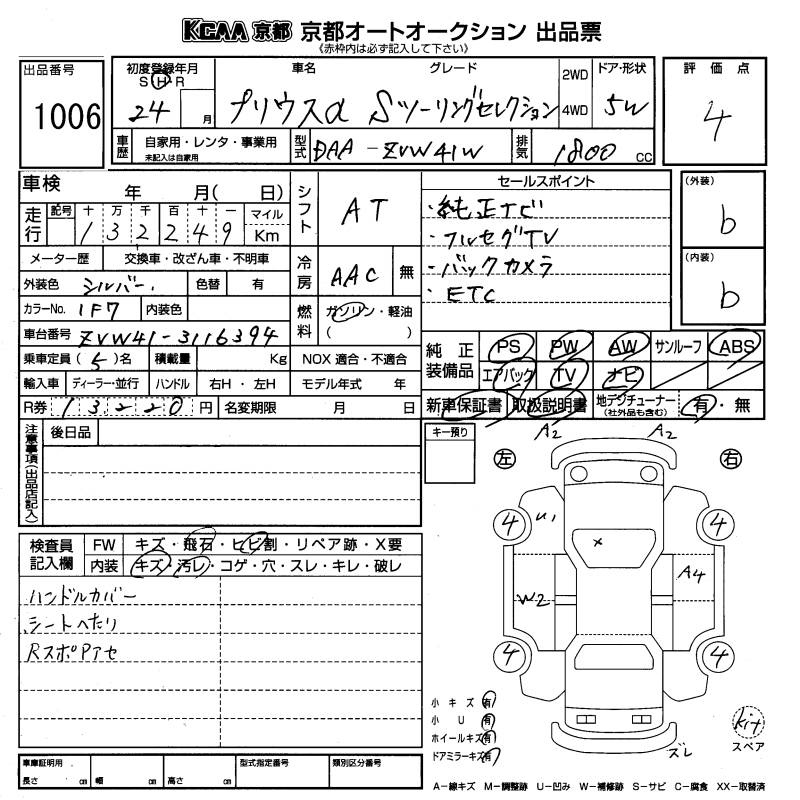 KCAA 京都 京都オートオークション 出品票
《赤枠内は必ず記入して下さい》
出品番号
1006
初度登録年月
S H R
24 月
車名 グレード
プリウスα Sツーリングセレクション
2WD
4WD
ドア・形状
5W
評価点
4
車歴
自家用・レンタ・事業用
未記入は自家用
型式
DAA-ZVW41W
排気
1800 cc
車検 年 月( 日)
走行
記号 十 万 千 百 十 一 マイル
1 3 2 2 4 9 Km
メーター歴 交換車・改ざん車・不明車
外装色 シルバー. 色替 有
カラーNo. 1F7 内装色
車台番号 ZVW41-3116394
乗車定員 (5)名 積載量 Kg
輸入車 ディーラー・並行 ハンドル 右H・左H
R券 13220 円 名変期限 月 日
シフト AT
冷房 AAC 無
燃料 ガソリン・軽油
( )
NOX 適合・不適合
モデル年式 年
セールスポイント
・純正ナビ
・フルセグTV
・バックカメラ
・ETC
(外装)
b
(内装)
b
純正装備品
PS PW AW サンルーフ ABS
エアバック TV ナビ
新車保証書 取扱説明書 地デジチューナー
(社外品も含む)
有・無
注意事項(出品店記入)
後日品
キー預り
A2 A2
左 右
4 4
U1
×
A4
W2
4 4
検査員記入欄
FW キズ・飛石・ヒビ割・リペア跡・X要
内装 キズ・汚レ・コゲ・穴・スレ・キレ・破レ
ハンドルカバー
シートへたり
RスポPアセ
小キズ 有
小U 有
ホイールキズ 有
ドアミラーキズ 有
ズレ
kit
スペア
車庫証明用
長さ cm 幅 cm 高さ cm
型式指定番号
類別区分番号
A－線キズ M－調整跡 U－凹み W－補修跡 S－サビ C－腐食 XX－取替済